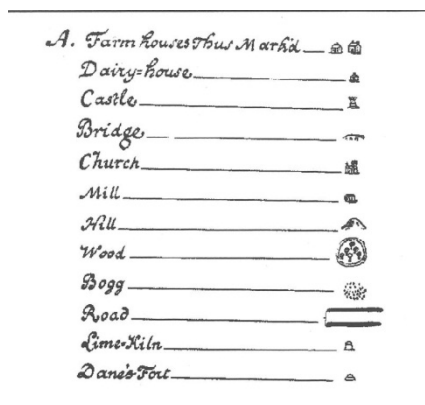 A. Farm houses Thus Mark'd
Dairy=house
Castle
Bridge
Church
Mill
Hill
Wood
Bogg
Road
Lime-Kiln
Dane's Fort